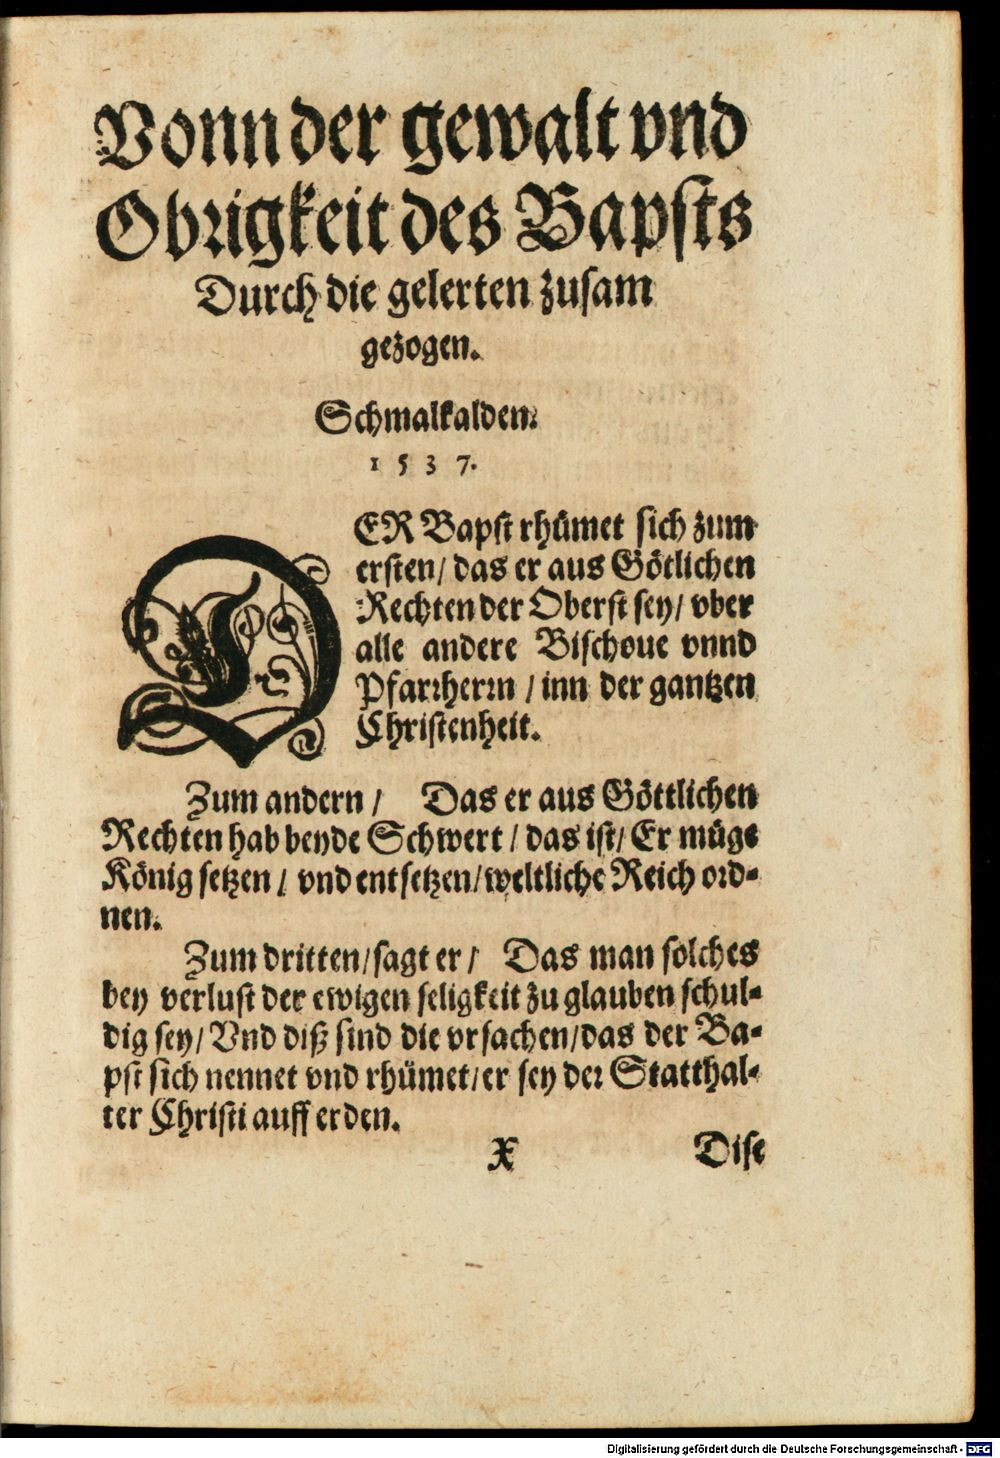 Vonn der gewalt vnd
Obrigkeit des Bapsts
Durch die gelerten zusam
gezogen.
Schmalkalden.
1537.
DER Bapst rhümet sich zum
ersten/ das er aus Götlichen
Rechten der Oberst sey/ vber
alle andere Bischoue vnnd
Pfarrherrn / inn der gantzen
Christenheit.
Zum andern / Das er aus Göttlichen
Rechten hab beyde Schwert / das ist/ Er müge
König setzen / vnd entsetzen/ weltliche Reich ord-
nen.
Zum dritten/ sagt er / Das man solches
bey verlust der ewigen seligkeit zu glauben schul-
dig sey/ Vnd diß sind die vrsachen/ das der Ba-
pst sich nennet vnd rhümet/ er sey der Statthal-
ter Christi auff erden.
X Dise
Digitalisierung gefördert durch die Deutsche Forschungsgemeinschaft - DFG